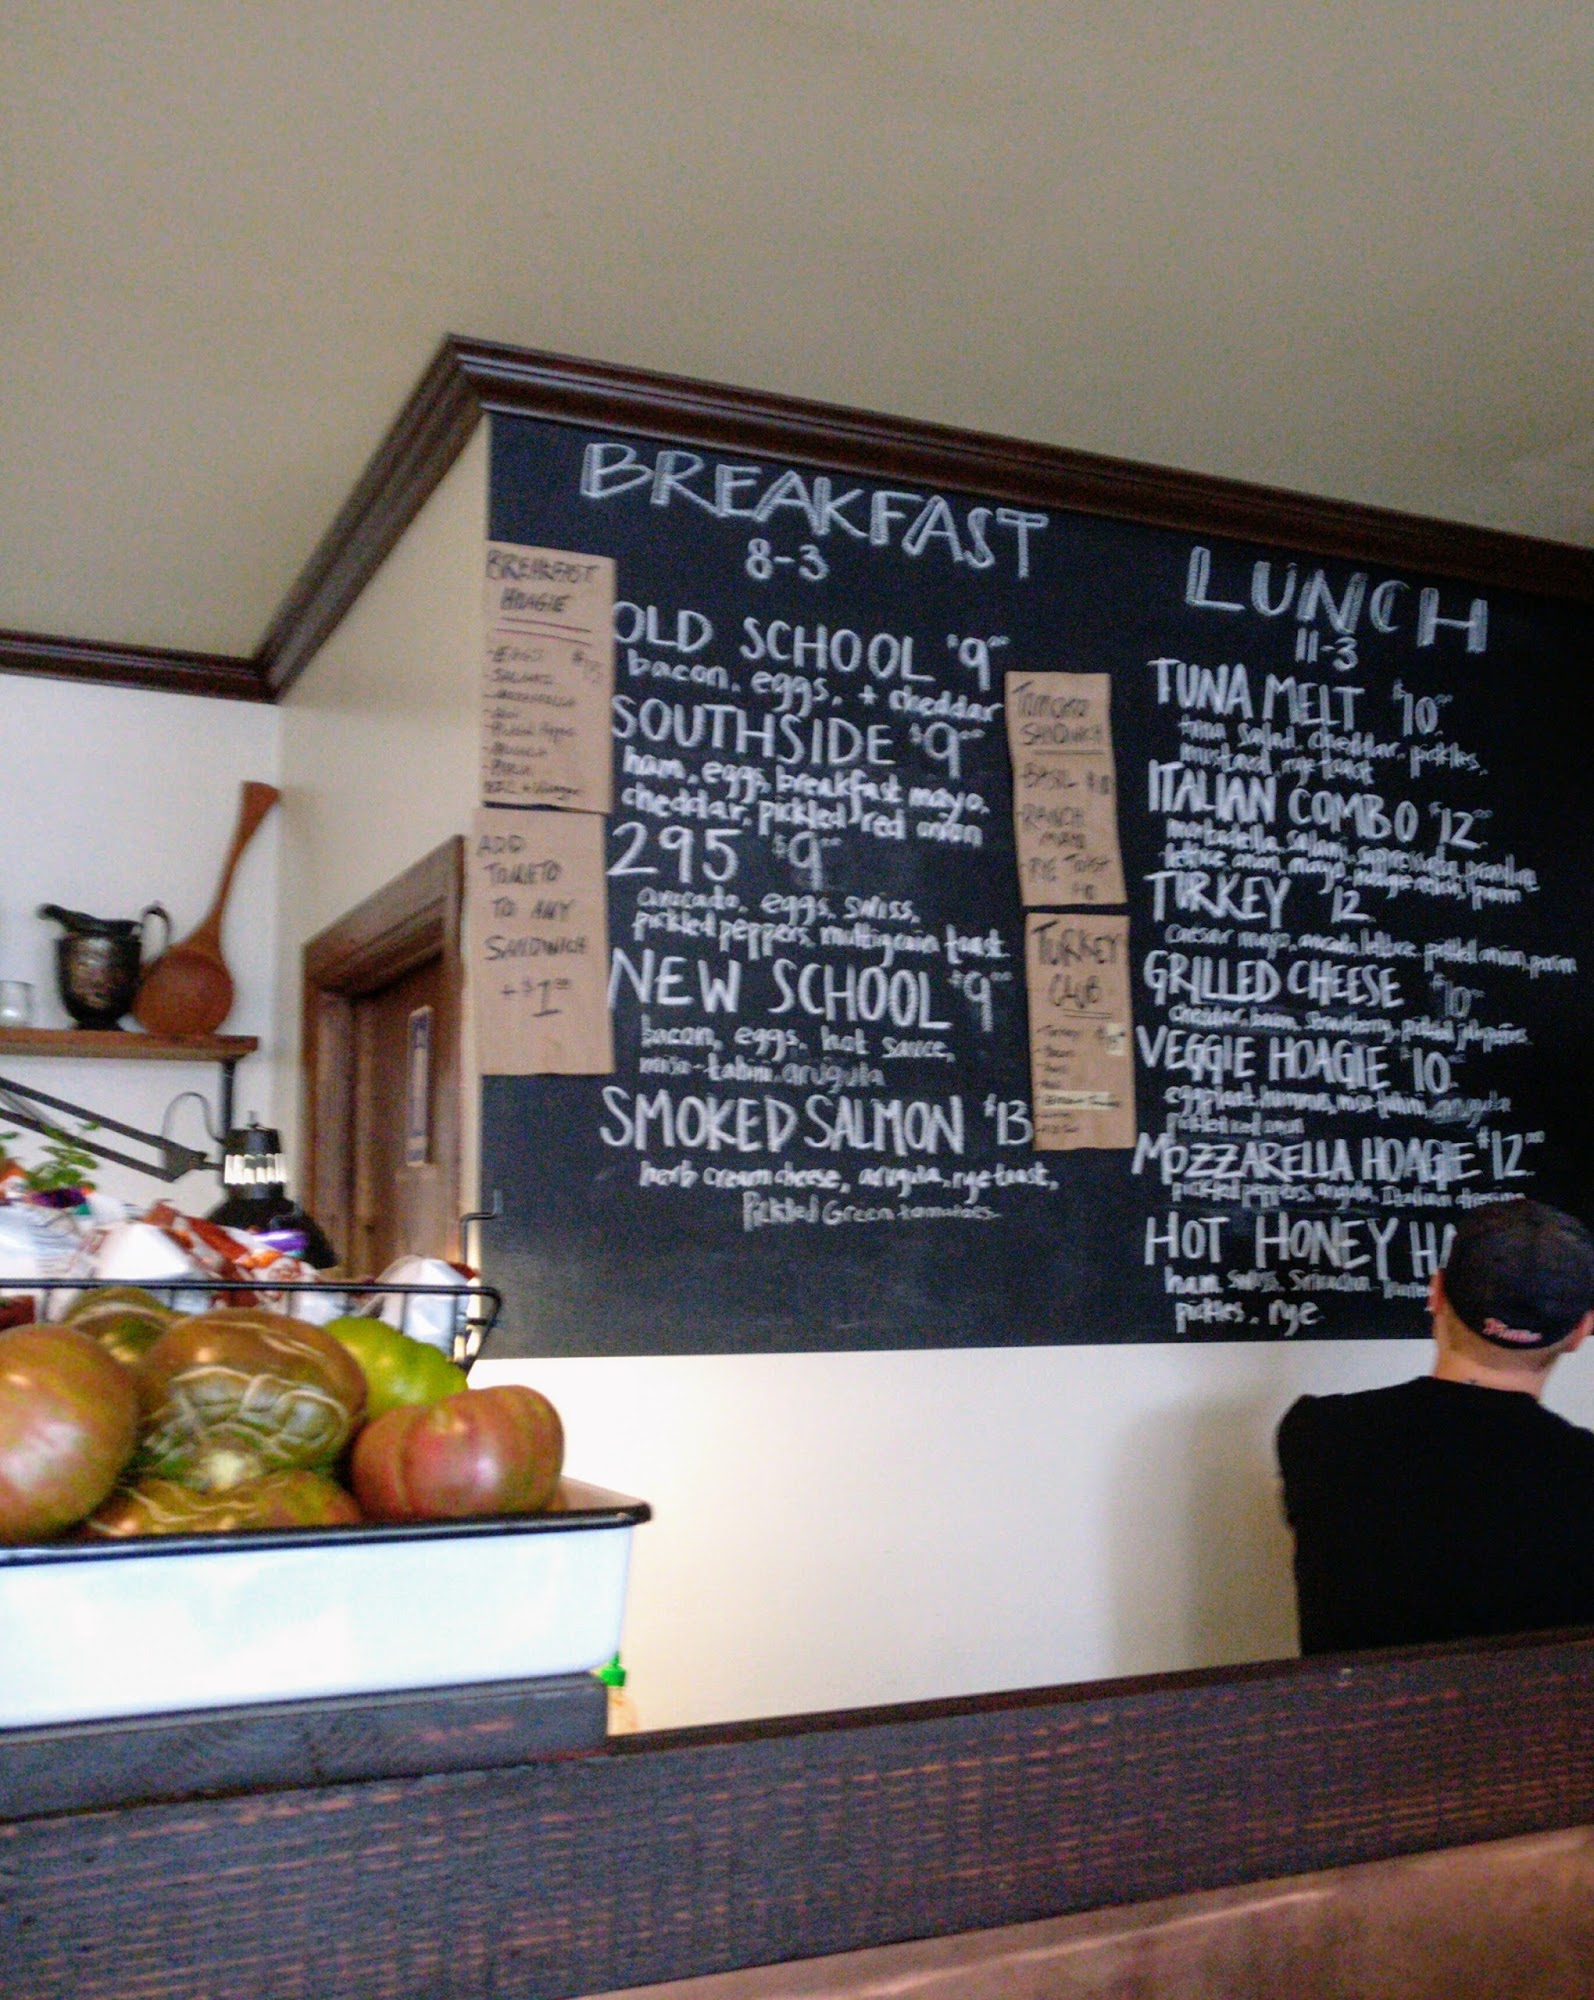 BREAKFAST
8-3
OLD SCHOOL $9.00
bacon, eggs, + cheddar
SOUTHSIDE $9.00
ham, eggs, breakfast mayo,
cheddar, pickled red onion
295 $9.00
avocado, eggs, swiss,
pickled peppers, multigrain toast
NEW SCHOOL $9.00
bacon, eggs, hot sauce,
miso-tahini, arugula
SMOKED SALMON $13
herb cream cheese, arugula, rye toast,
Pickled Green tomatoes
BREAKFAST
HOAGIE
-EGGS
ADD
TOMATO
TO ANY
SANDWICH
+$1.00
TOMATO
SANDWICH
-BASIL
-RANCH
MAYO
-RYE TOAST
TURKEY
CLUB
LUNCH
11-3
TUNA MELT $10.00
tuna salad, cheddar, pickles,
mustard, rye toast
ITALIAN COMBO $12.00
mortadella, salami,
lettuce, onion, mayo,
TURKEY 12
caesar mayo, avocado, lettuce, pickled onion, parm
GRILLED CHEESE $10.00
cheddar, bacon, strawberry, pickled jalapeños
VEGGIE HOAGIE $10
eggplant, hummus, miso-tahini, arugula
pickled red onion
MOZZARELLA HOAGIE $12.00
pickled peppers, arugula, Italian
HOT HONEY
ham, swiss,
pickles, rye